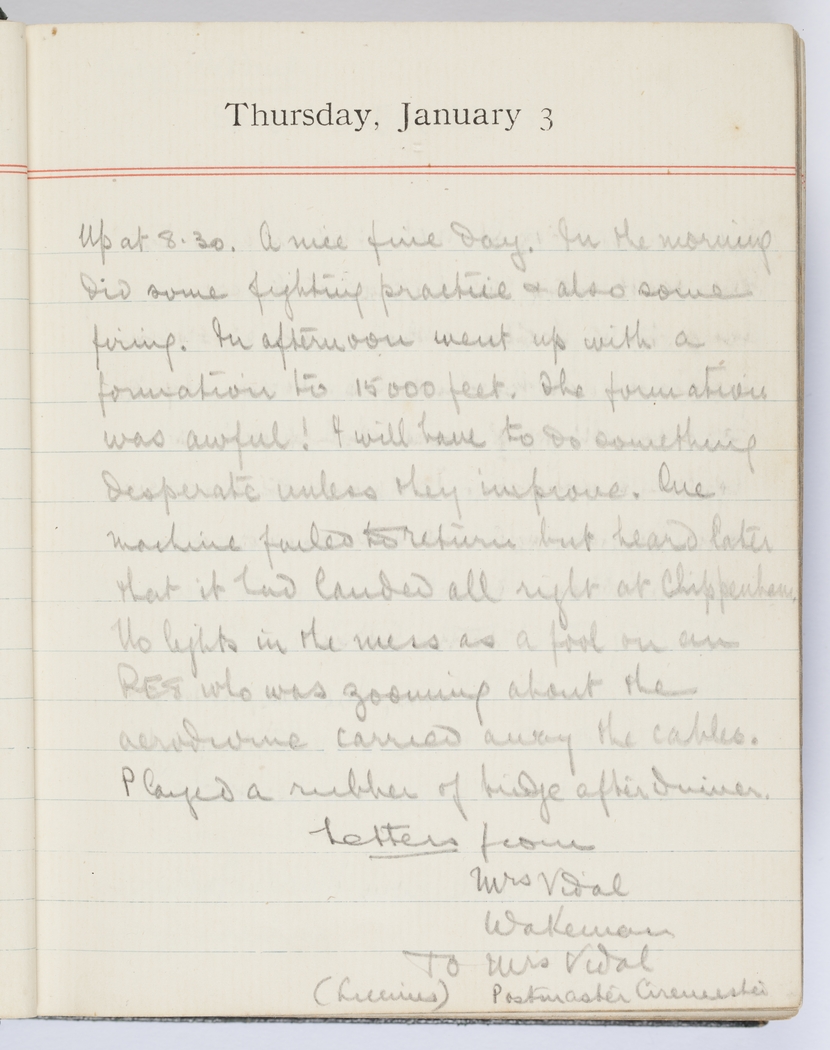 Thursday, January 3
Up at 8.30. A nice fine day. In the morning
did some fighting practice & also some
firing. In afternoon went up with a
formation to 15000 feet. The formation
was awful! I will have to do something
desperate unless they improve. One
machine failed to return but heard later
that it had landed all right at Chippenham.
No lights in the mess as a fool on an
RE8 who was zooming about the
aerodrome carried away the cables.
Played a rubber of bridge after dinner.
Letters from
Mrs Vidal
Wakeman
To Mrs Vidal
Postmaster Cirencester